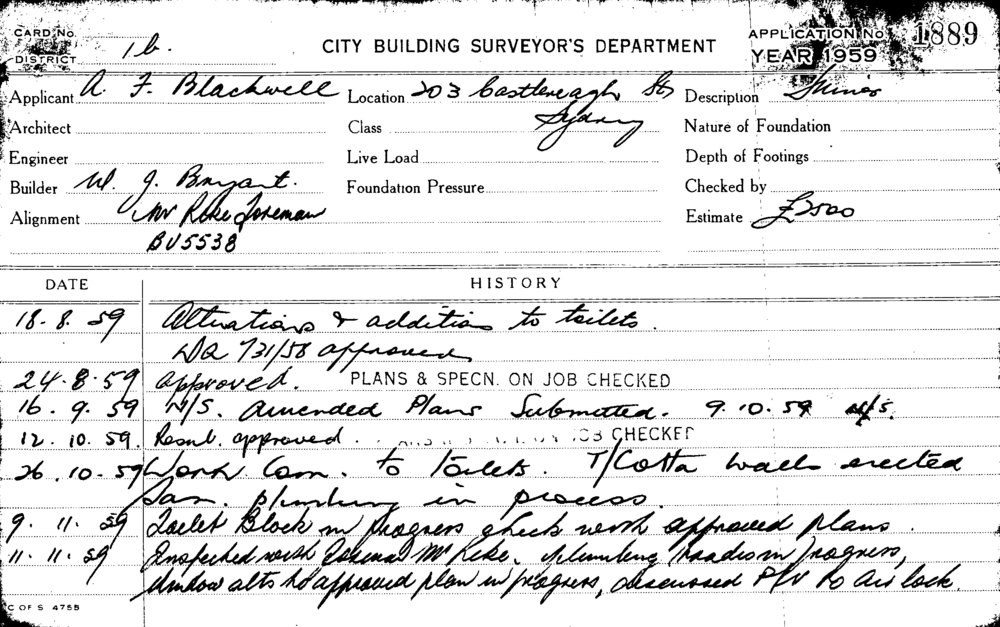 CARD No. 1b. CITY BUILDING SURVEYOR'S DEPARTMENT APPLICATION No. 1889
DISTRICT YEAR 1959
Applicant A. F. Blackwell Location 203 Castlereagh St, Description
Architect Class Sydney Nature of Foundation
Engineer Live Load Depth of Footings
Builder W. J. Bryant. Foundation Pressure Checked by
Alignment Mr Foreman Estimate £2500
BU5538
DATE HISTORY
18. 8. 59 Alterations & additions to toilets.
DA 731/58 approved
24. 8. 59 approved. PLANS & SPECN. ON JOB CHECKED
16. 9. 59 N/S. Amended Plans Submitted. 9. 10. 59 N/S.
12. 10. 59. approved. ON JOB CHECKED
26. 10. 59 Work Com. to toilets. T/Cotta walls erected
San. plumbing in process.
9. 11. 59 Toilet Block in progress check with approved plans.
11. 11. 59 Inspected with Foreman Mr plumbing in progress,
window alts to approved plan in progress, discussed P/V to air lock.
C OF S 4755